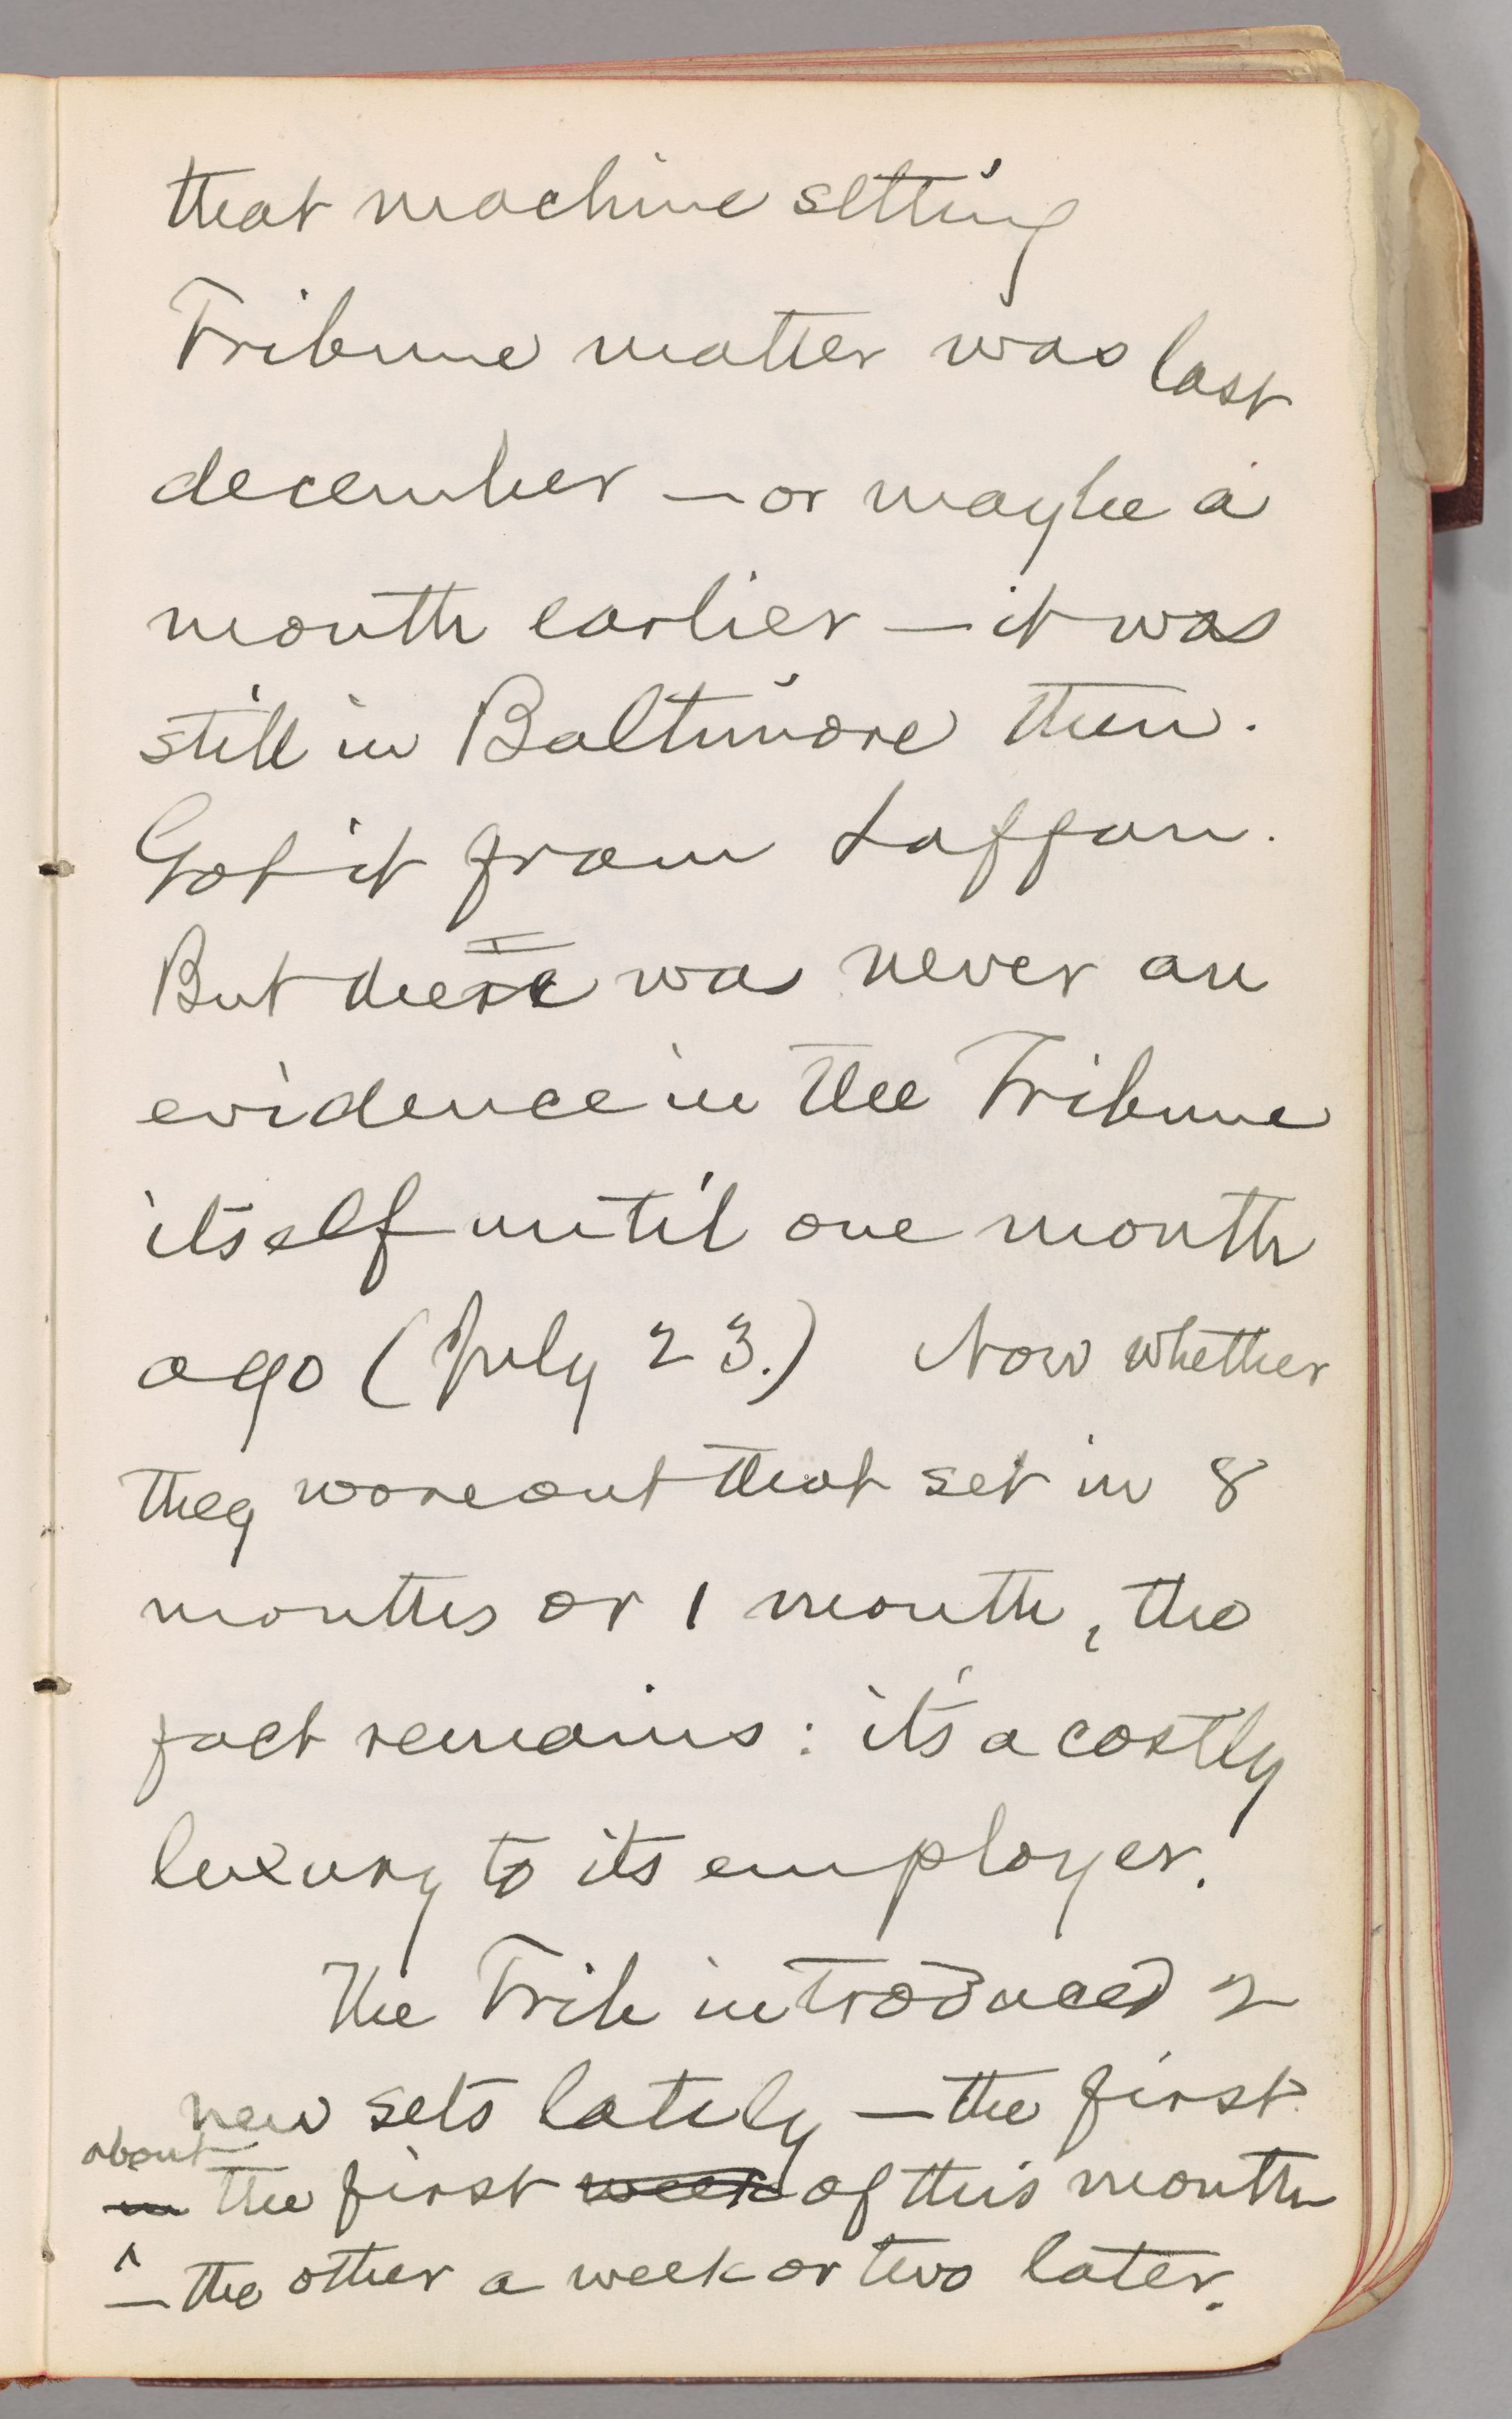 that machine setting
Tribune matter was last
december — or maybe a
month earlier — it was
still in Baltimore then.
Got it from Laffan.
But there was never an
evidence in the Tribune
itself until one month
ago (July 23.) Now whether
they wore out that set in 8
months or 1 month, the
fact remains: it's a costly
luxury to its employer.
The Trib introduced 2
new sets lately — the first
about
in the first week of this month
— the other a week or two later.